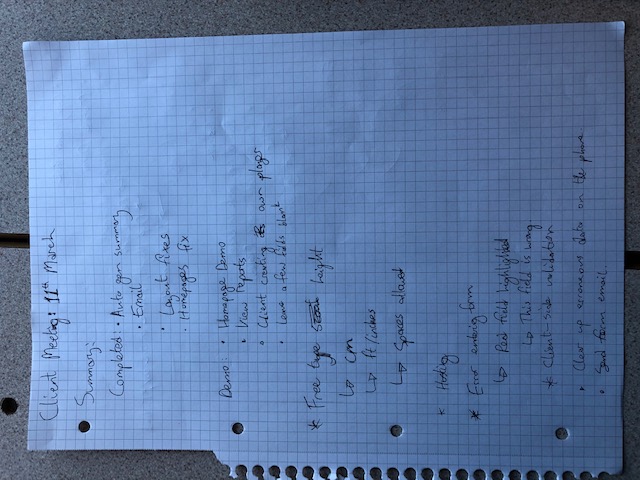 Client Meeting: 11th March
Summary:
Completed: • Auto gen summary
• Email
• Layout fixes
• Homepages fix
Demo: • Homepage Demo
• View reports
• Client creating own player
• Leave a few fields blank
* Free type height
↳ cm
↳ ft/inches
↳ Spaces allowed
* Hosting
* Error entering form
↳ Red field highlighted
↳ This field is wrong
* Client-side validation
• Clear up erroneous data on the phone
• Send form email.